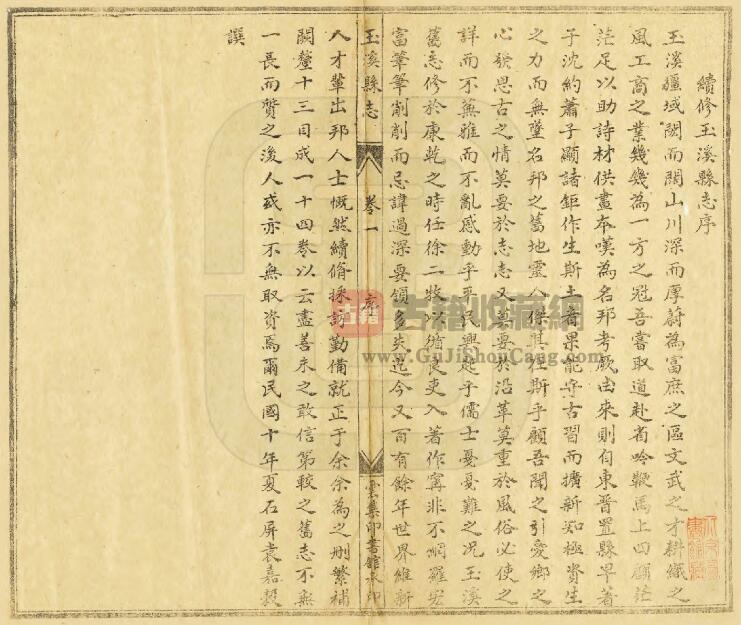 續修玉溪縣志序
玉溪疆域闊而闊山川深而厚蔚為富庶之區文武之才耕織之
風工商之業幾幾為一方之冠吾嘗取道赴省吟鞭馬上四顧茫
茫足以助詩材供畫本嘆為名邦考厥由來則自東晉置縣早著
子沈約蕭子顯諸鉅作生斯土者果能守古習而擴新知極資生
之力而無墜名邦之舊地靈人傑其在斯乎顧吾聞之引愛鄉之
心發思古之情莫要於志志又莫要於沿革莫重於風俗必使之
詳而不蕪雅而不亂感動乎平民興起乎儒士憂憂難之况玉溪
舊志修於康乾之時任徐二牧以循良吏入著作寓非不網羅宏
富筆筆削削而忌諱過深要領多失迄今又百有餘年世界維新
玉溪縣志
卷一
序
雲集印書館承印
人才輩出邦人士慨然續脩採訪勤備就正于余余為之刪繁補
闕釐十三目成一十四卷以云盡善未之敢信第較之舊志不無
一長而贊之後人或亦不無取資焉爾民國十年夏石屏袁嘉穀
譔
古籍
古籍收藏網
www.GuJiShouCang.com